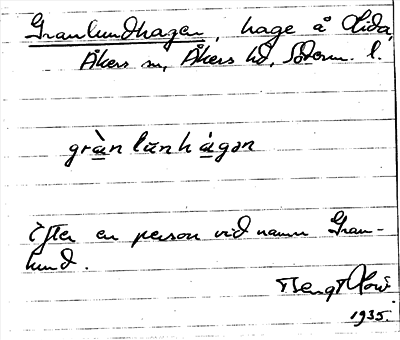 Granlundhagen, hage å Lida,
Åkers sn, Åkers hd, Söderm. l.
gràn lūnh ágən
Efter en person vid namn Gran-
lund.
Bengt
1935.